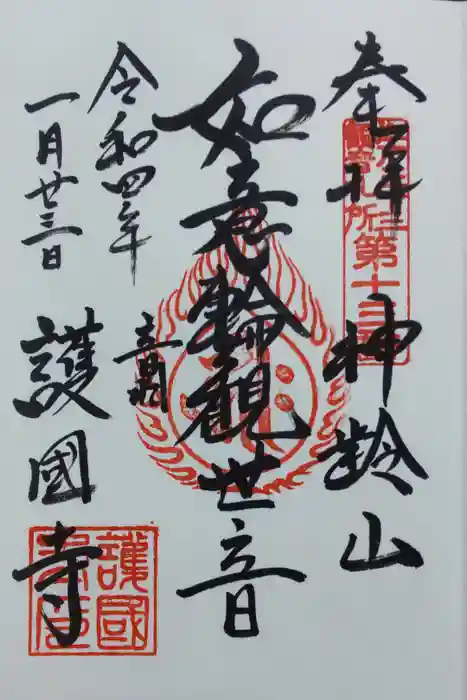 奉拝
神齢山
如意輪観世音
令和四年
一月廿三日
音羽
護國寺
第十三番
護國